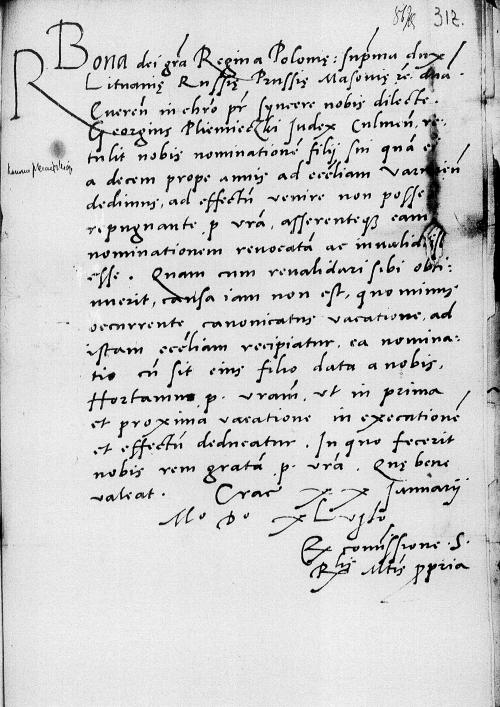 312.
R Bona dei grã Regina Polonię: sup̃ma dux
Lituanię Russię Prussię Masovię &c. dña.
Q̃veren̄ in chr̃o pr̃ syncere nobis dilecte.
Georgius Plieniecżki Iudex Culmen̄, re-
tulit nobis nominationẽ filij sui quã ei
a decem prope annis ad ecc̃liam Varmien̄
dedimus, ad effectũ venire non posse
repugnante p. vr̃a, asserenteq̃ eam
nominationem revocatã ac invalidã
esse. Quam cum revalidari sibi obti-
nuerit, causa iam non est, quo minus
occurrente canonicatus vacatione, ad
istam ecc̃liam recipiatur, ea nomina-
tio cũ sit eius filio data a nobis.
Hortamur p. vram̃, ut in prima
et proxima vacatione in executionẽ
et effectũ deducatur. In quo fecerit
nobis rem gratã p. vr̃a. Quę bene
valeat. Crac̃ x x Januarij
Mo Do xLvijo
Ex com̃issione S.
Rlis Mtis p̱pria